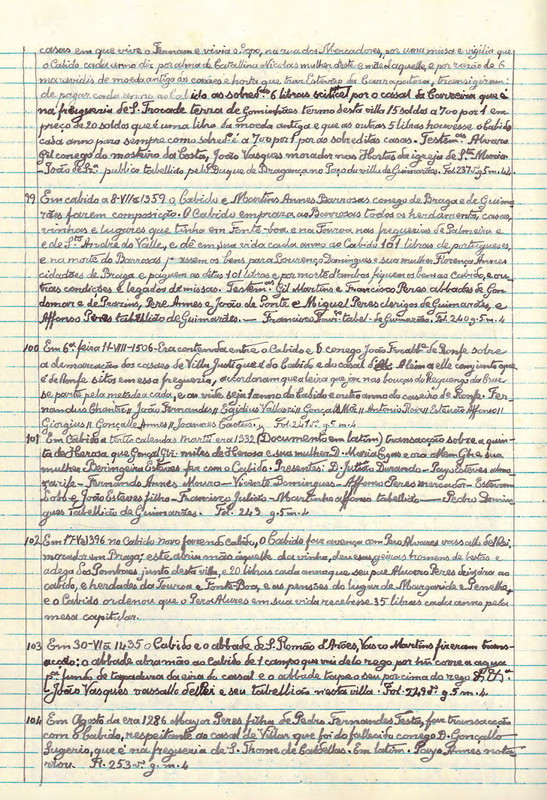 casas em que vive o Fernam e vivia o Sapo, na rua dos Mercadores, por uma missa e vigilia que
o Cabido cada anno diz por alma de Catellina Nicolas mulher deste e nodia daquelle, e por razão de 6
maravidis de moeda antiga ás casães e horta que traz Estevam da Carrapatosa, transigiram:
de pagar cada anno ao Cabido as sobre.das 6 libras scilicet por o casal da Carreira que é
na freguezia de S. Trocade terra de Gominhães termo desta villa 15 soldos a 700 por 1 em
preço de 20 soldos que é uma libra da moeda antiga e que as outras 5 libras houvesse o Cabido
cada anno para sempre como sobred.º é a 700 por 1 por as sobreditas casas. Testem.as Alvaro
Gil conego do mosteiro da Costa, João Vasques morador nas Hortas da igreja de S.ta Maria
João de Sz.ª publico tabellião pelo Duque de Bragança no Paço da villa de Guimarães. Fol. 237 vº g. 5 m. 4
99 Em cabido a 8-VII-1359 o Cabido e Martins Annes Barrosas conego de Braga e de Guima
rães fazem composição. O Cabido empraza ao Barrosas todos os herdamentos, casas,
vinhas e lugares que tinha em Fonte-boa e na Touroa nas freguezias de Palmeira e
e de S.to André da Valle, e dé em sua vida cada anno ao Cabido 101 libras de portuguezes,
e na morte do Barrosas passem os bens para Lourenço Domingues e sua mulher Florença Annes
cidadões de Braga e paguem as ditas 101 libras e por morte d'ambos fiquem os bens ao Cabido, e ou
tras condições e legados de missas. Testem.as Gil Martins e Francisco Peres abbades de Gon
domar e de Prazins, Pere Annes e João de Ponte e Miguel Peres clerigos de Guimarães, e
Affonso Peres tabellião de Guimarães. — Francisco Lour.ço tabel. de Guimarães. Fol. 240 g. 5 m. 4
100 Em 6.ª feira 14-VIII-1506. Era contenda entre o Cabido e o conego João abb.e de Ronfe sobre
a demarcação dos casaes de Villa Justi que é do Cabido e do casal d' Além a elle conjunto que
é de Ronfe sitos em essa freguezia, acordaram que a leira que jaz nas bouças do Reguengo da Cruz
se parta pela metade cada, e as vides seja 1 anno do Cabido e outro anno do caseiro de Ronfe. Fer
nandus Chantre // João Fernandes // Egidius Vallasci // Gonçalo // Antonio // Estevão Affonso //
Giorgius // Gonçalle Annes // Joannes Caetus. Fol. 241 vº g. 5 m. 4
101 Em Cabido a tertio calendas martii era 1332 (Documento em latim) transacção sobre a quin
ta de Herosa que Gonçal Gºi. miles de Herosa e sua mulher D. Maria Egas e ora Mem Ghe sua
mulher Beringeira Esteves fez com o Cabido. Presentes: D. Julião Durando - Payo Esteves almo
xarife - Fernando Annes Mouro - Vicente Domingues - Affonso Peres mercador - Estevam
Lobo e João Esteves filho - Francisco Julião - Martinho Affonso tabellião — Pedro Domin
gues tabellião de Guimarães. Fol. 243 g. 5 m. 4
102 Em 17-V-1396 no Cabido novo fazendo cabido, o Cabido fez avença com Pero Alvares vassallo d'elRei
morador em Braga; este abriu mão áquelle da vinha, devesas, geiras homens de bestas e
adega dos Pombaes junto desta villa, e 20 libras cada anno que seu pae Alvaro Peres deixára ao
cabido, e herdades da Touroa e Fonte-Boa, e as pensões do lugar de Margaride e Penella,
e o Cabido ordenou que o Pero Alvares em sua vida recebesse 35 libras cada anno pela
mesa capitular.
103 Em 30-VI-1435 o Cabido e o abbade de S. Romão d'Arões, Vasco Martins fizeram trans
acção: o abbade abra mão ao Cabido de 1 campo que vai de lo rego por hu corre a agua
p.ª fundo, de tapadura da eira do casal e o abbade tape o seu por cima do rego
João Vasques vassallo d'elRei e seu tabellião nesta villa. Fol. 249 vº g. 5 m. 4.
104 Em Agosto da era 1286 Mayor Peres filha de Pedro Fernandes Testa, fez transacção
com o Cabido, respeitante ao casal de Villar que foi do fallecido conego D. Gonçallo
Sugerio, que é na freguezia de S. Thome de Caldellas. Em latim. Payo Annes nota
riou. Fl. 253 vº g. m. 4